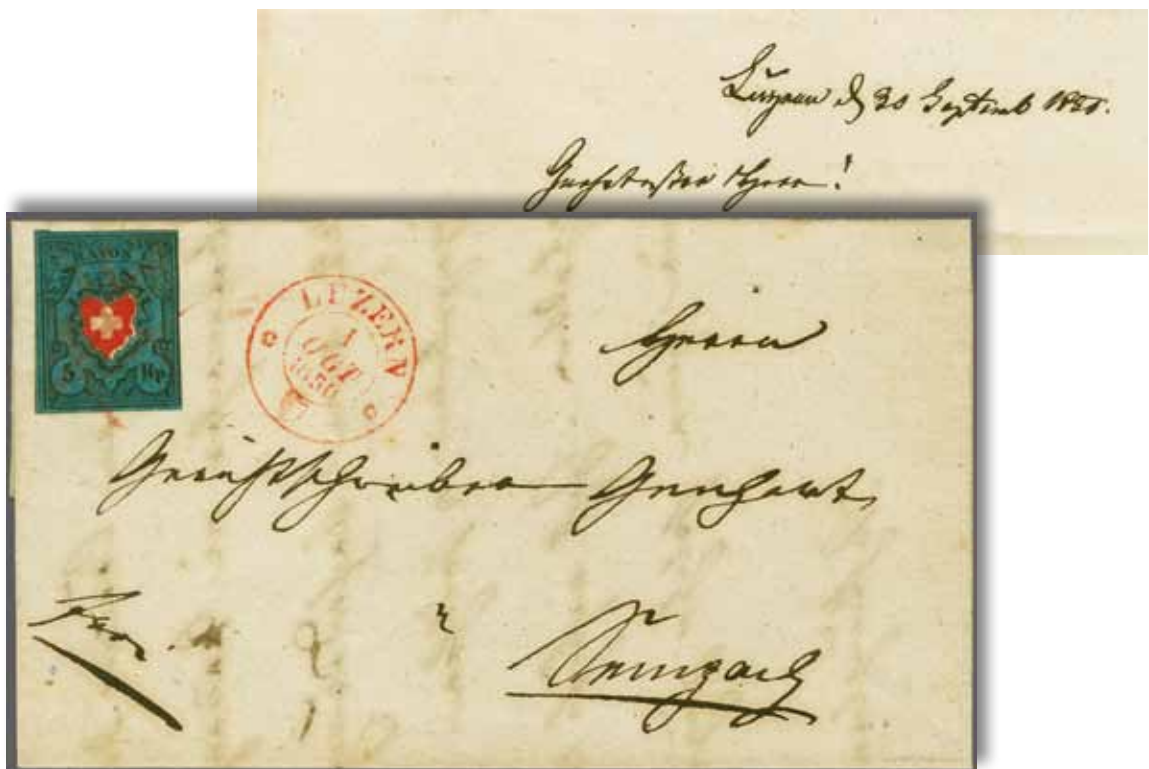 Luzern d 30 Septemb 1850.
Geehrtester Herr!
RAYON
5 Rp
LUZERN
1
OCT
1850
Herrn
Gerichtschreiber Genhart
Fr.
Sempach